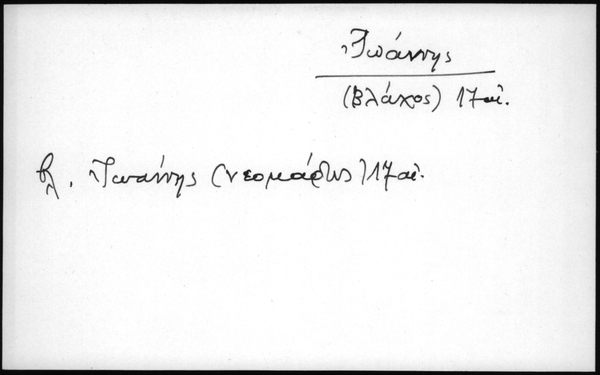 Ἰωάννης
(Βλάχος) 17 αἰ.
βλ. Ἰωάννης (νεομάρτυς) 17 αἰ.